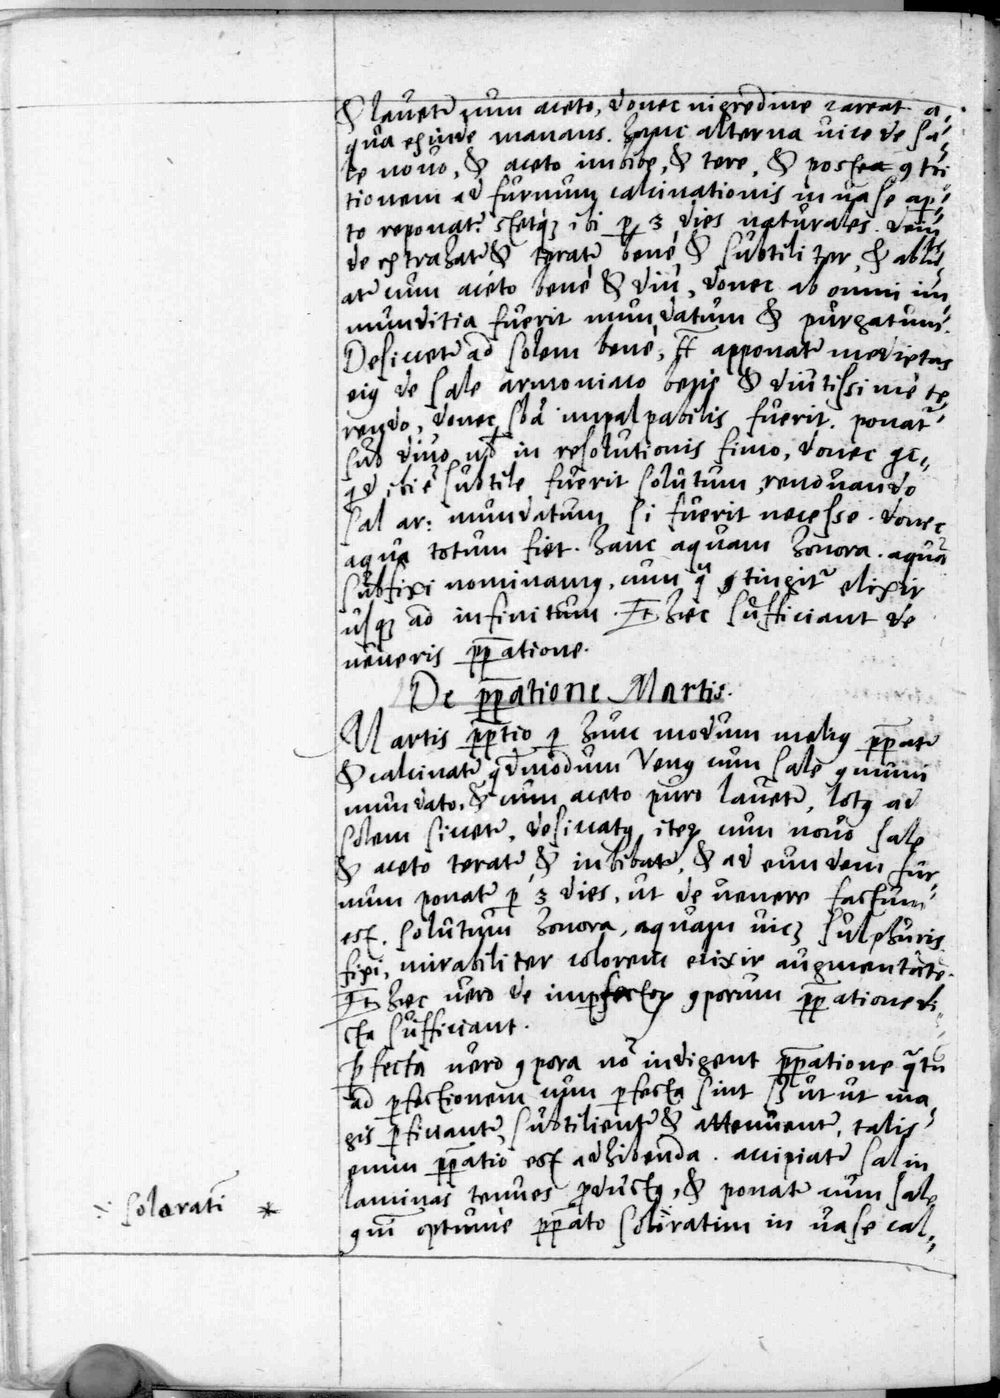 & lauetr cum aceto, donec nigredine careat a,,
qua exinde manans. hanc alterna uice de sa,,
le nouo, & aceto imbibe, & tere, & postea 9tri
tionem ad furnum calcinationis in uase ap,,
to reponatr. stetq3 ibi p 3 dies naturales. dein,,
de extrahatr & teratr bene & subtiliter, & ablu,,
atr cum aceto bene & diu, donec ab omni im,,
munditia fuerit mundatum & purgatum.
Desiccetr ad solem bene, apponatr medietas
ei9 de sale armoniaco & diutissime te,,
rendo, donec sba impalpabilis fuerit. ponatr
sub diuo ul in resolutionis fimo, donec
qd ibi e subtile fuerit solutum, renouando
sal ar: mundatum si fuerit necesse. donec
aqua totum fiet. hanc aquam honora. aqua
subfixi nominam9, cum qa 9tingitr elixir
usq3 ad infinitum. Et hec sufficiant de
ueneris ppatione.
De ppatione Martis.
Martis pptio p hunc modum meli9 ppatr
& calcinatr qdmodum Ven9 cum sale 9muni
mundato, & cum aceto puro lauetr, lot9 ad
solem siccetr, desiccat9 iter cum nouo sale
& aceto teratr & inbibatr, & ad eundem fur,,
num ponatr p 3 dies, ut de uenere factum
est. solutum honora, aquam uic3 sulphuris
fixi, mirabiliter colorem elixir augmentate.
Et hec uero de impfector 9porum ppatione di,,
cta sufficiant.
Pfecta uero 9pora no indigent ppatione qtu
ad pfectionem cum pfecta sint s3 ut ut ma,,
gis pficiantr, subtilientr & attenuentr, talis
enim ppatio est adhibenda. accipiatr sal in
laminas tenues product9, & ponatr cum sale
9mi optime ppato soloratim in uase cal,,
∵ solorati *